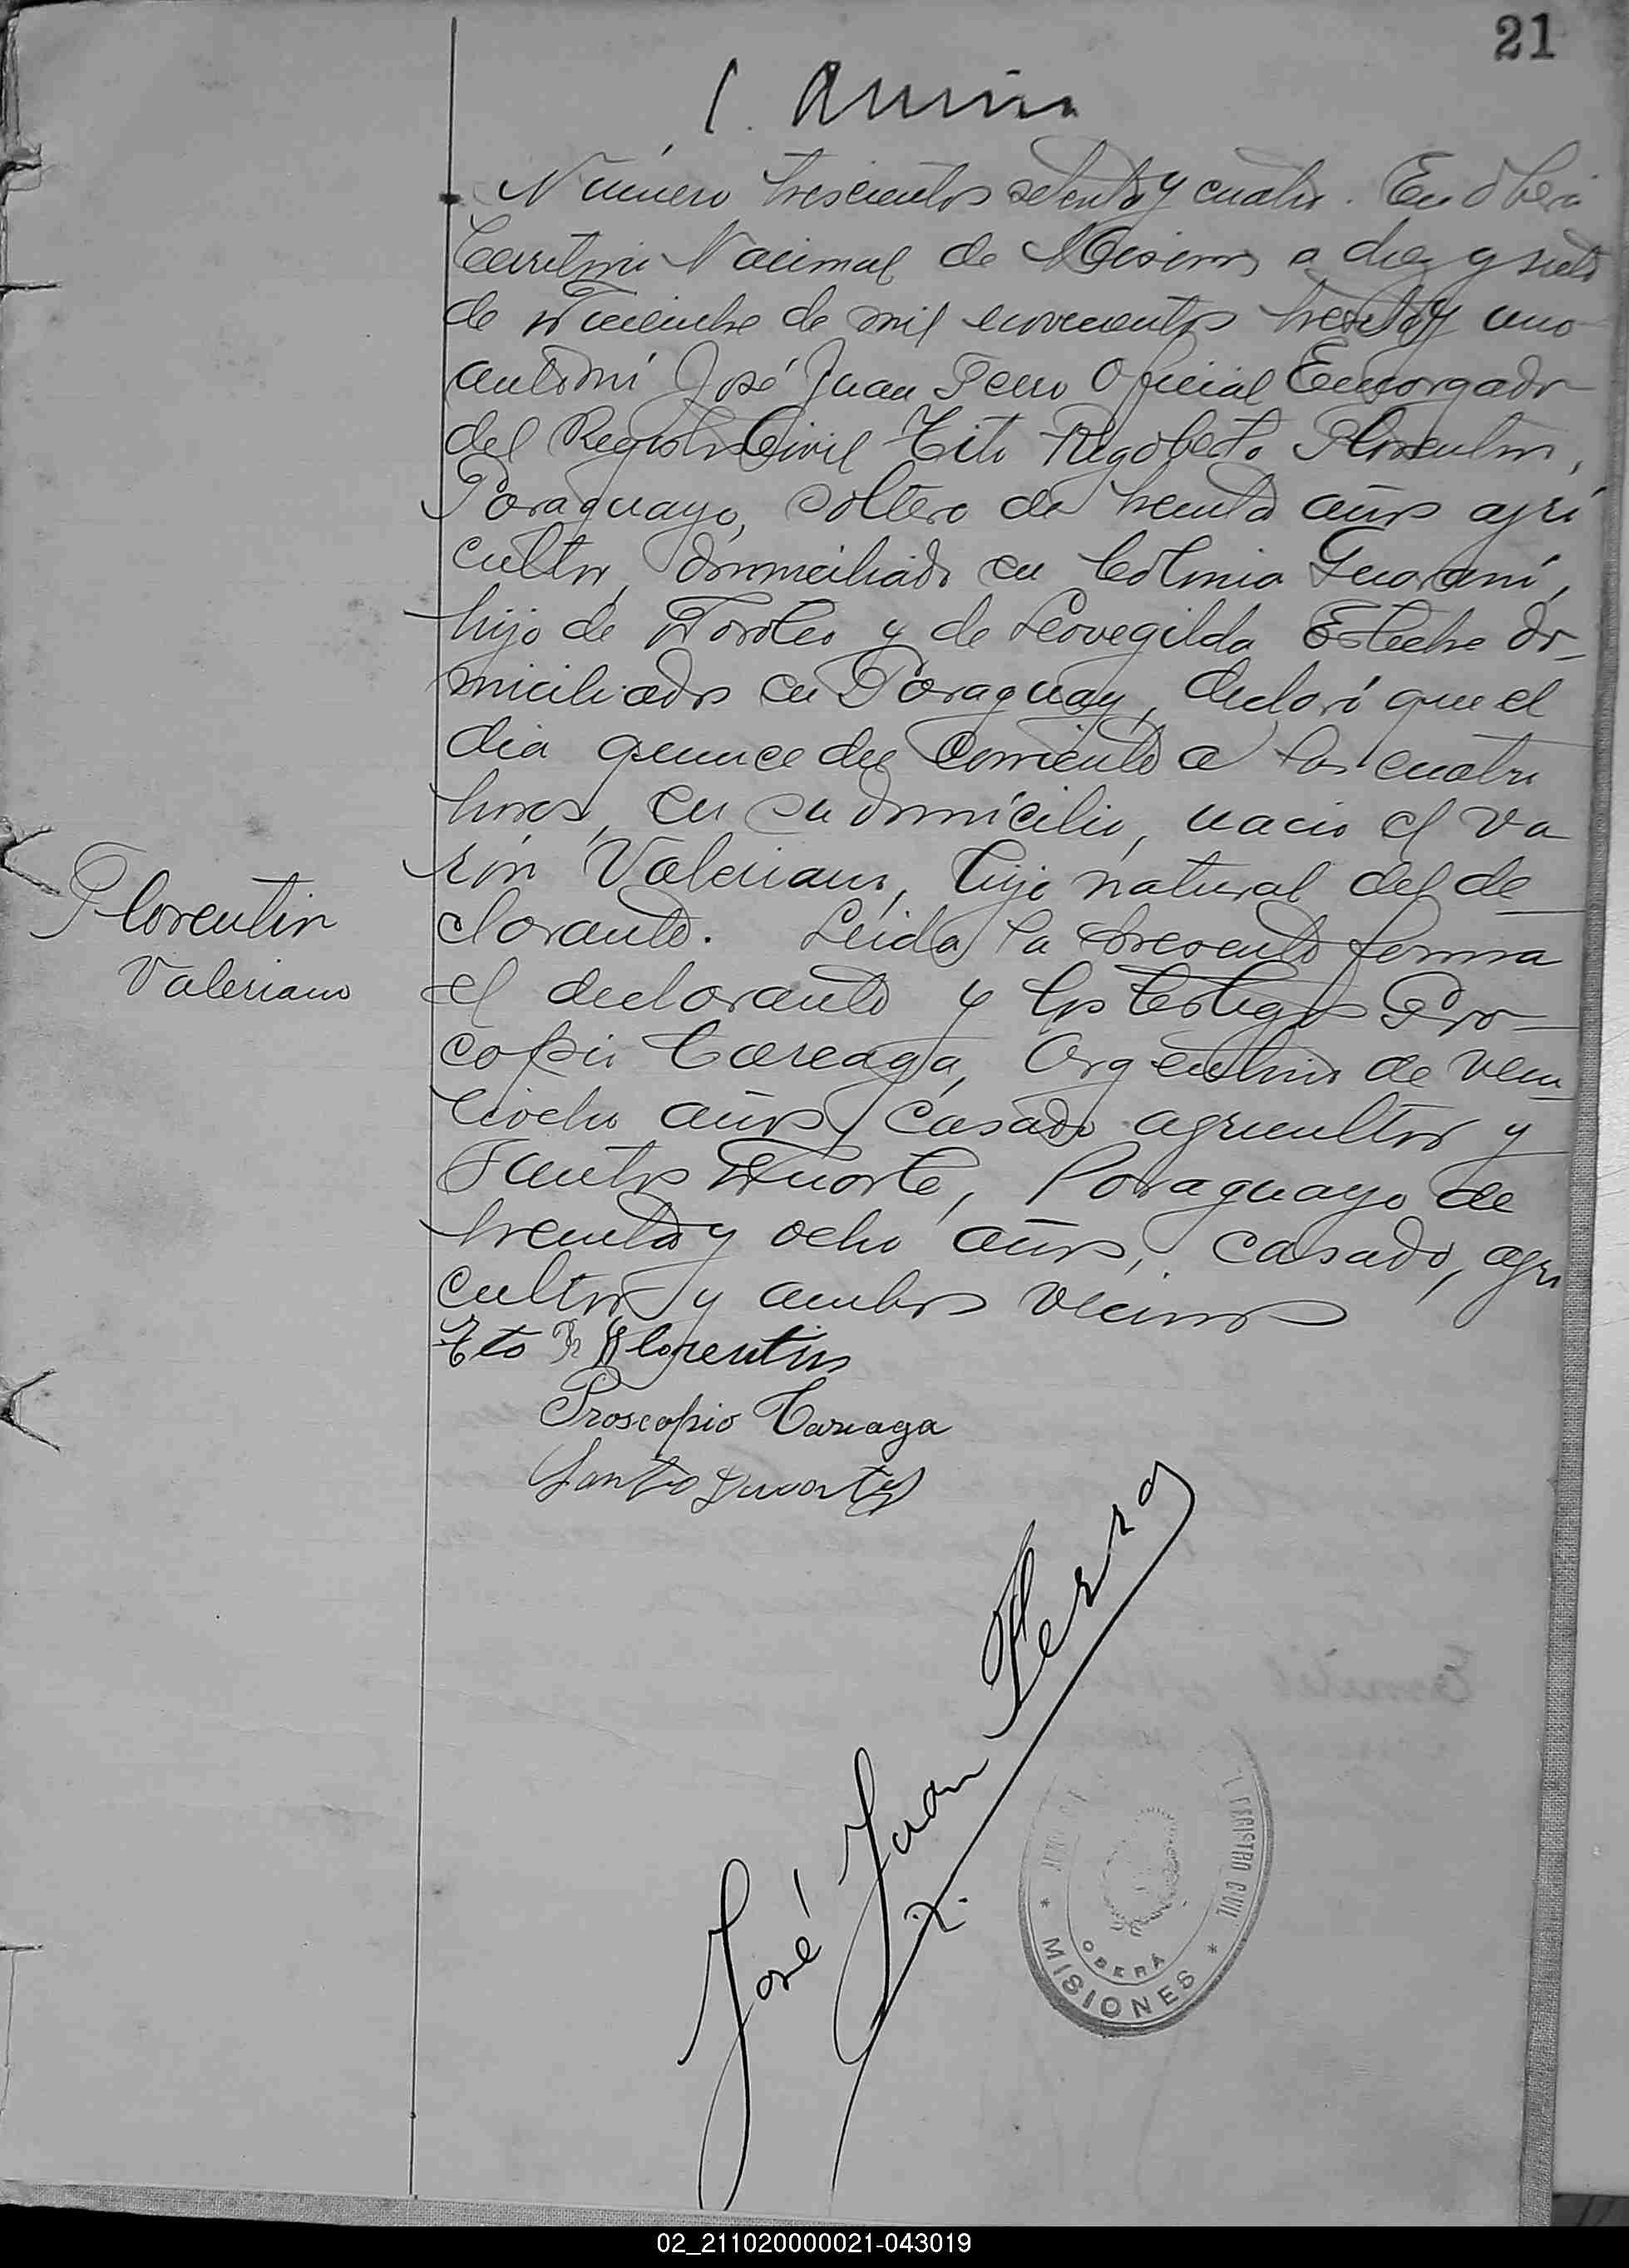 21
Número trescientos setenta y cuatro. En Oberá
Territorio Nacional de Misiones a diez y siete
de Diciembre de mil novecientos treinta y uno
ante mí José Juan Perro Oficial Encargado
del Registro Civil Tito Rigoberto Florentin,
Paraguayo, soltero de treinta años agri
cultor, domiciliado en Colonia Guaraní,
hijo de Doroteo y de Leovegilda Esteche do-
miciliados en Paraguay, declaró que el
dia quince del corriente a las cuatro
horas, en su domicilio, nacio el va
rón Valeriano, hijo natural del de
clarante. Leida la presente firma
el declarante y los testigos Pro-
copio Careaga, Argentino de vein
tiocho años, casado agricultor y
Santos Duarte, Paraguayo de
treinta y ocho años, casado, agri
cultor y ambos vecinos
Florentin
Valeriano
Tito R Florentin
Proscopio Careaga
Santo Duarte
José Juan Perro
REGISTRO CIVIL
* MISIONES *
OBERÁ
02_211020000021-043019